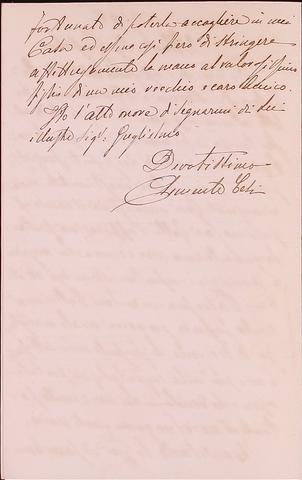 fortunato di poterla accogliere in mia
Casa ed essere così fiero di stringere
affettuosamente la mano al valorosissimo
figlio di un mio vecchio e caro Amico.
Ho l'alto onore di segnarmi di Lei
illustre Sigr. Guglielmo
Devotissimo